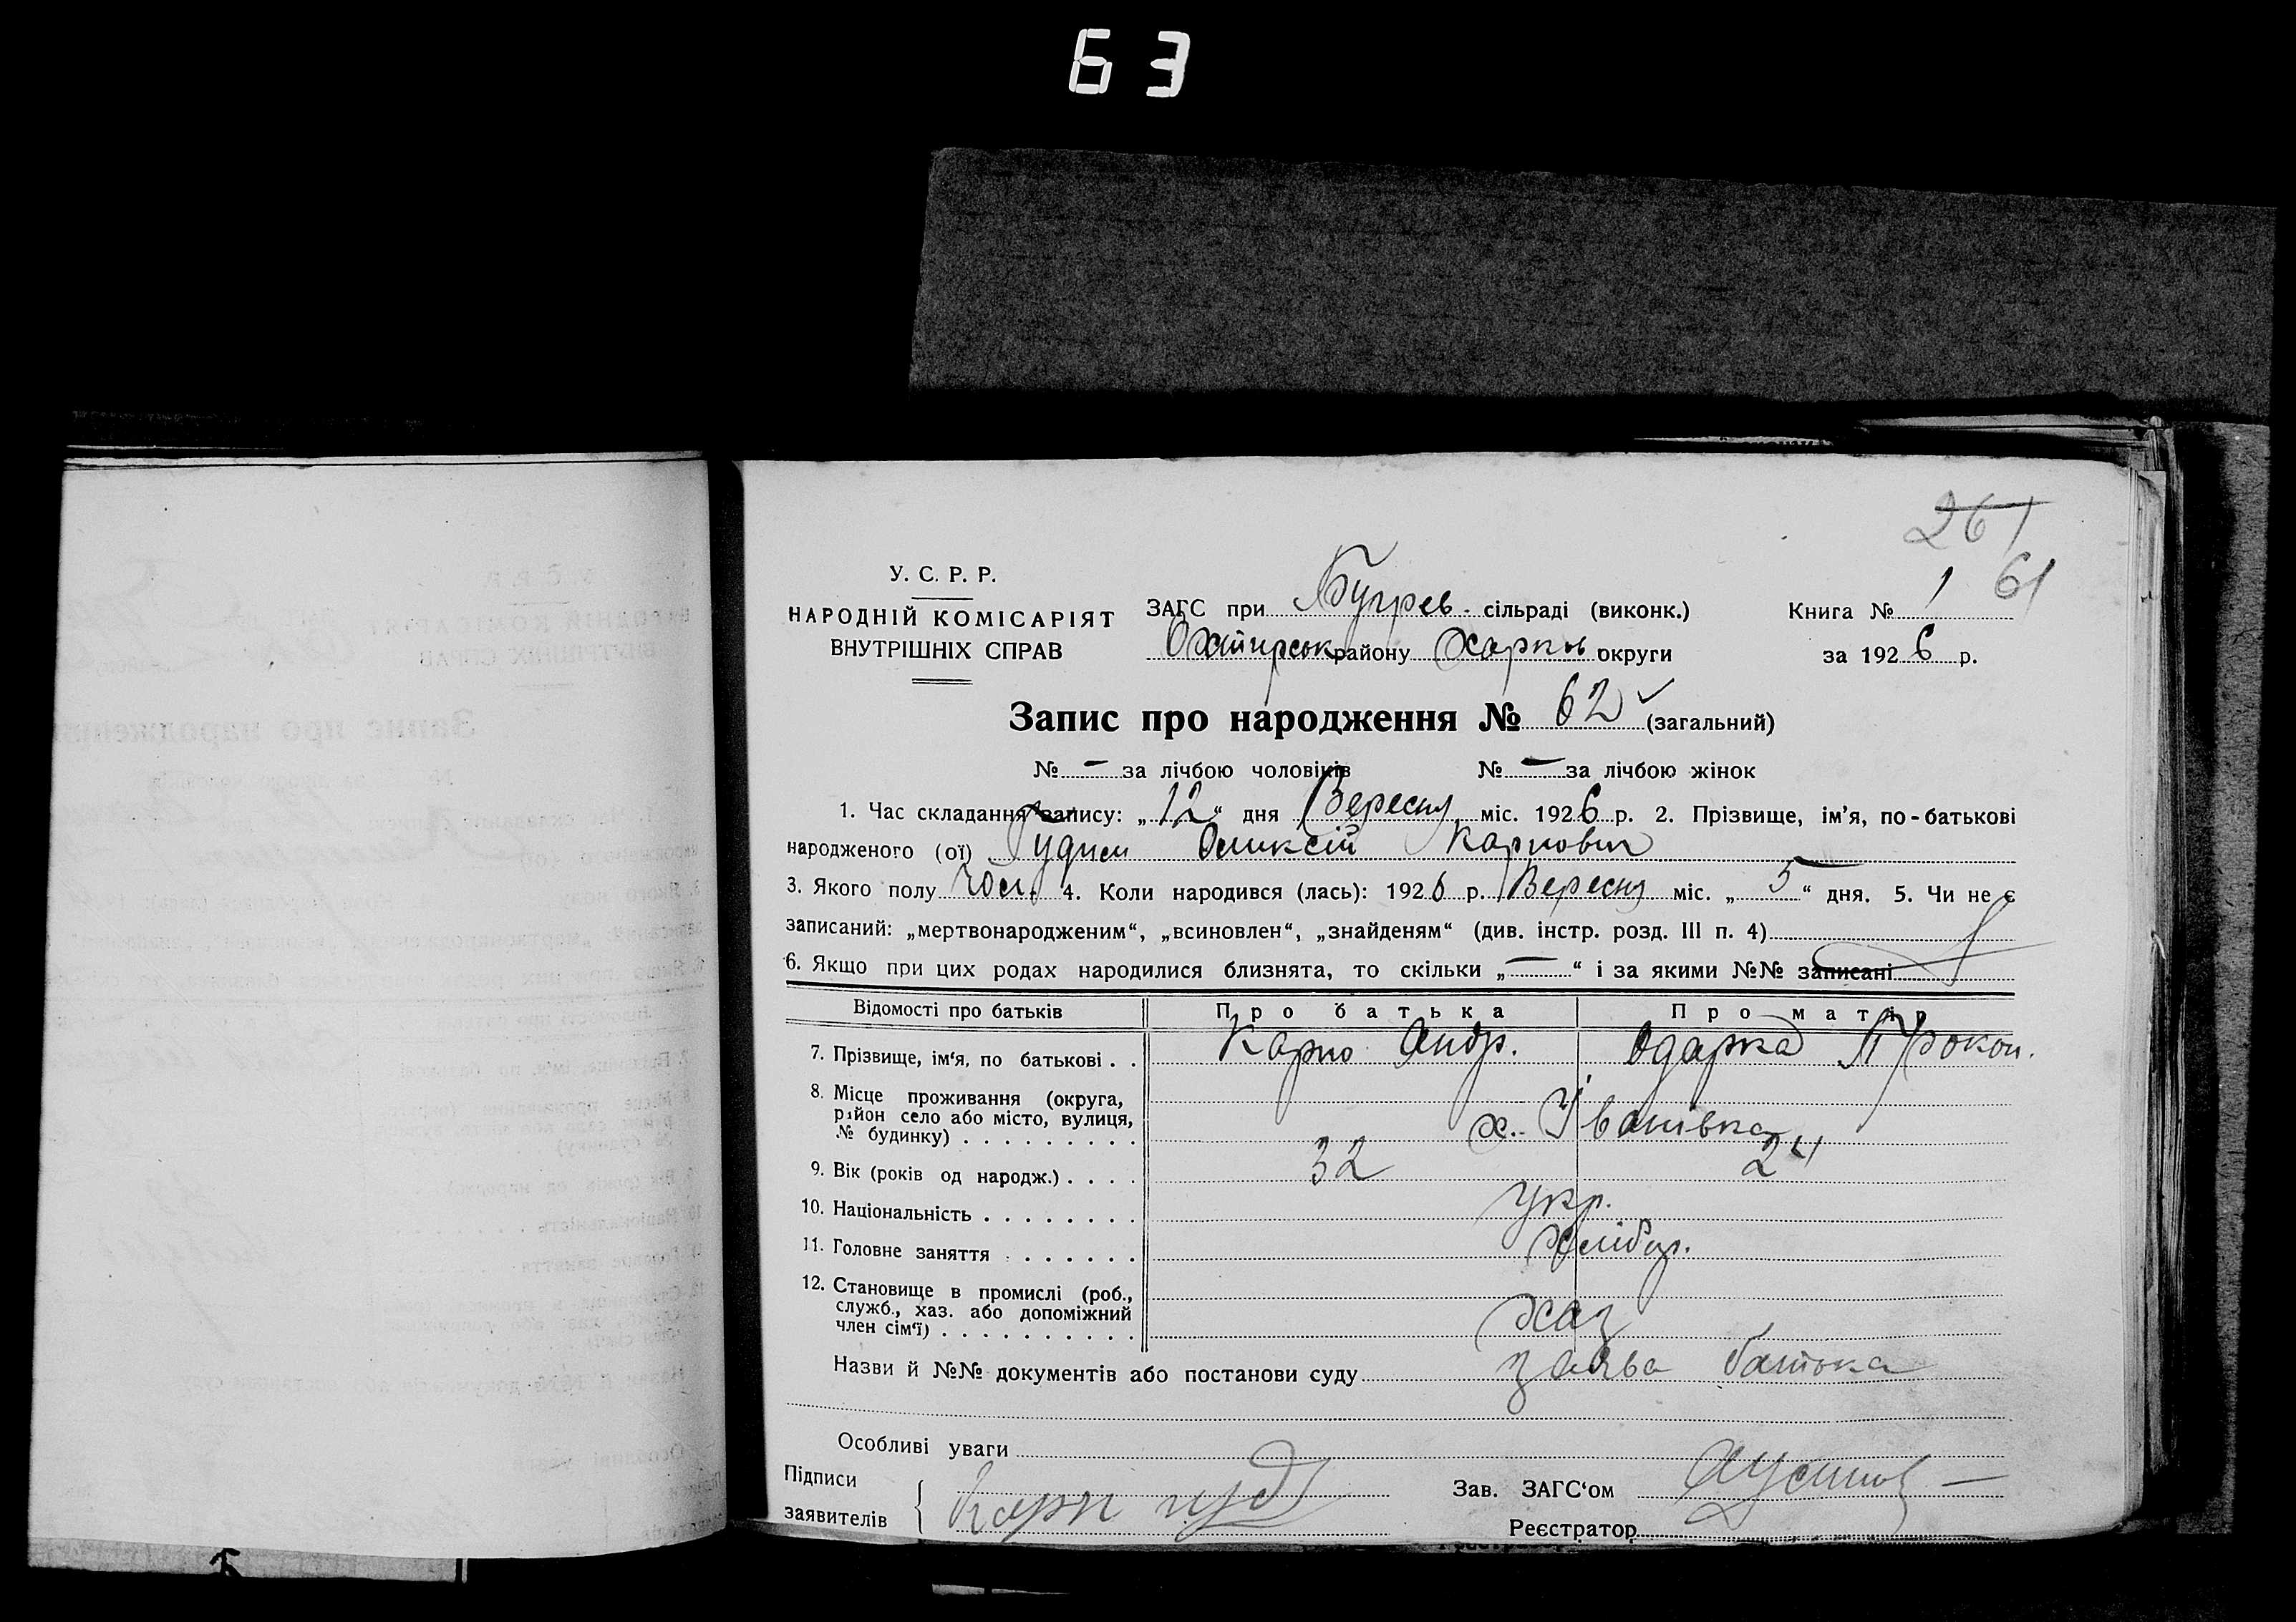 63
261
61
У. С. Р. Р.
НАРОДНІЙ КОМІСАРІЯТ
ВНУТРІШНІХ СПРАВ
ЗАГС при Бугрев. сільраді (виконк.)
Охтирськ району Харків округи
Книга № 1
за 1926 р.
Запис про народження № 62 (загальний)
№ — за лічбою чоловіків № — за лічбою жінок
1. Час складання запису: „12“ дня Вересня міс. 1926 р. 2. Прізвище, ім’я, по-батькові
народженого (ої) Олексій Карпович
3. Якого полу чол. 4. Коли народився (лась): 1926 р. Вересня міс. „5“ дня. 5. Чи не є
записаний: „мертвонародженим“, „всиновлен“, „знайденям“ (див. інстр. розд. III п. 4)
6. Якщо при цих родах народилися близнята, то скільки „—“ і за якими №№ записані
Відомості про батьків Про батька Про матір
7. Прізвище, ім‘я, по батькові . . Карпо Андр. Одарка Прокоп.
8. Місце проживання (округа,
район село або місто, вулиця,
№ будинку) . . . . . . . . . х. Іванівка
9. Вік (років од народж.) . . . . 32 24
10. Національність . . . . . . . . укр.
11. Головне заняття . . . . . . хлібор.
12. Становище в промислі (роб.,
служб., хаз. або допоміжний
член сім‘ї) . . . . . . . . . . хаз
Назви й №№ документів або постанови суду заява батька
Особливі уваги
Підписи
заявителів Карп гуд
Зав. ЗАГС‘ом
Реєстратор